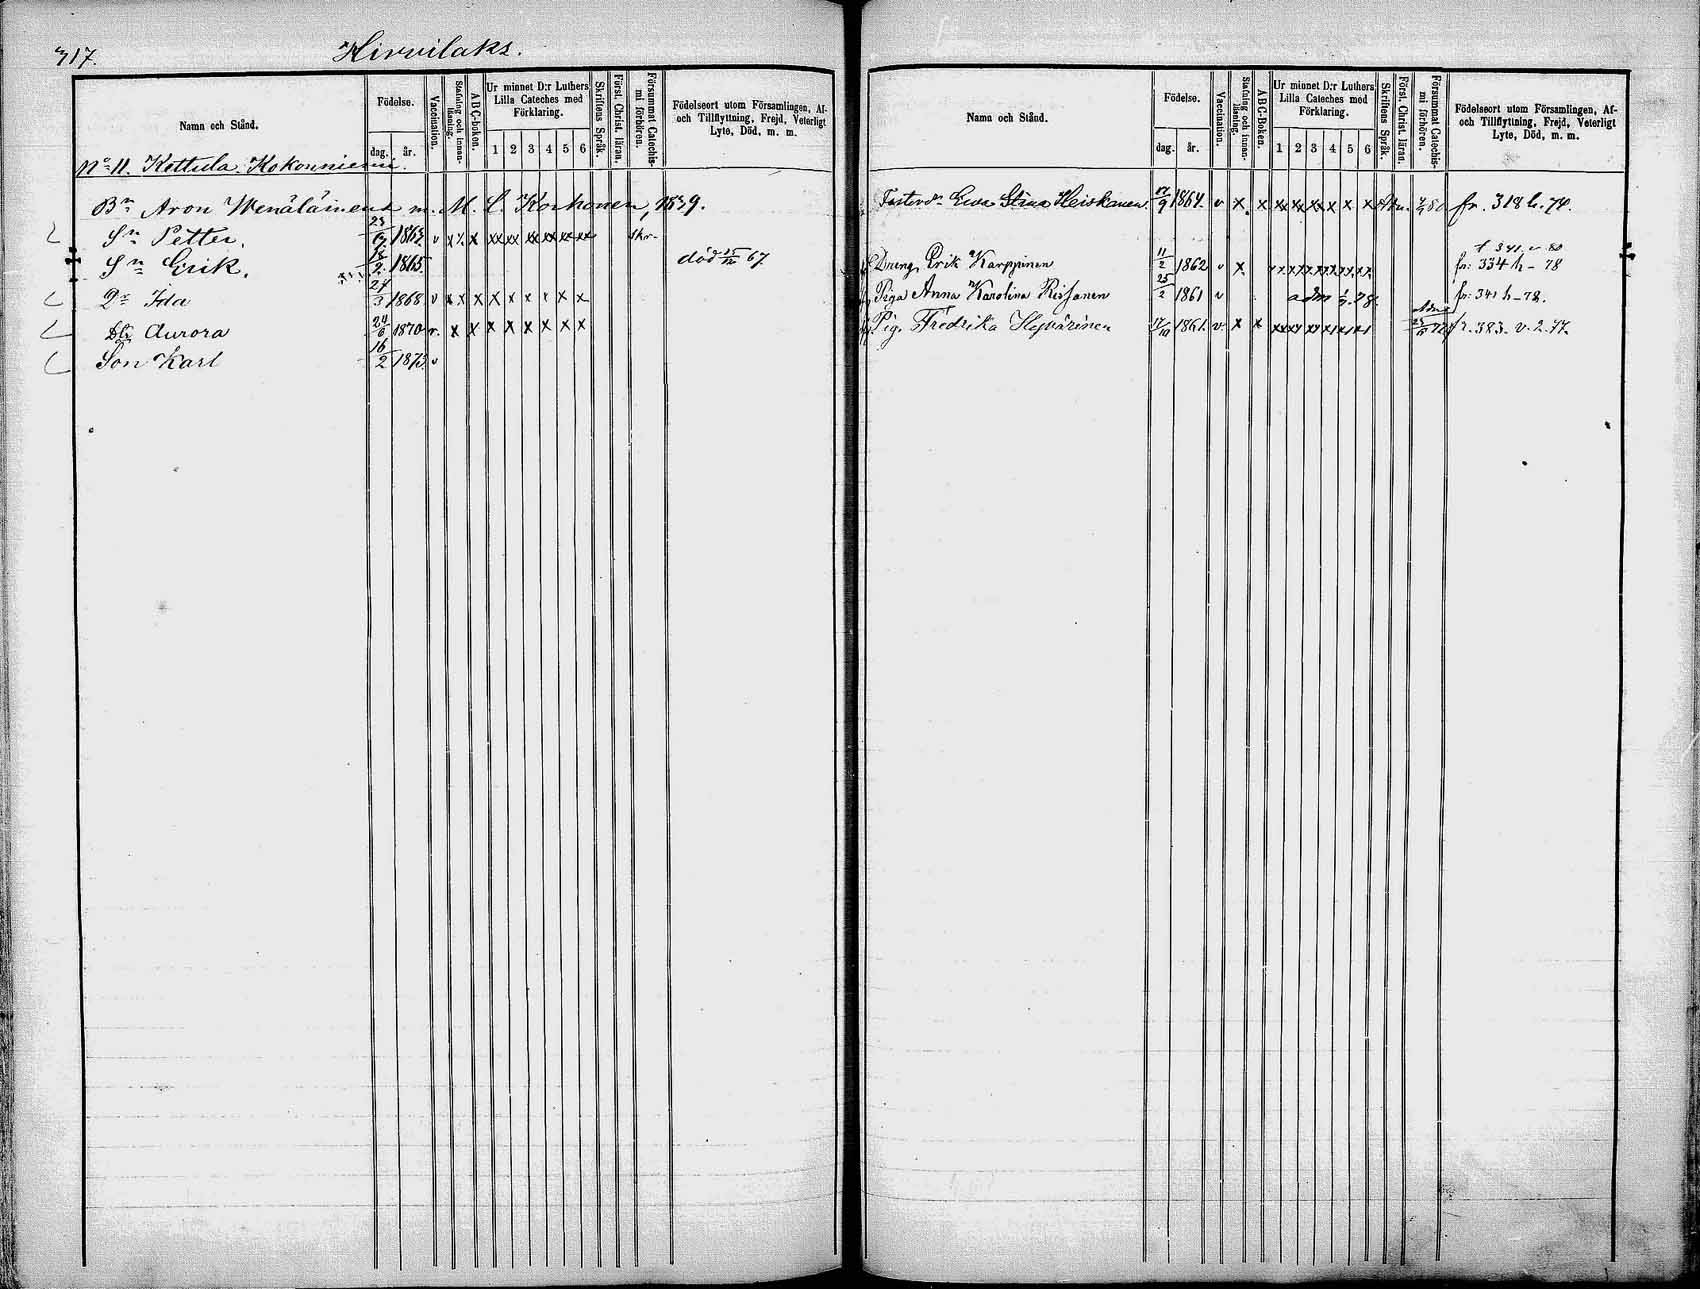 317.
Hirvilaks.
Namn och Stånd.
Födelse.
dag. år.
Vaccination.
Stafning och innanläsning.
A B C-boken.
Ur minnet D:r Luthers Lilla Cateches med Förklaring.
1 2 3 4 5 6
Skriftens Språk.
Först. Christ. läran.
Försummat Catechismi förhören.
Födelseort utom Församlingen, Af- och Tillflyttning, Frejd, Veterligt Lyte, Död, m. m.
No 11. Kettula Kokonniemi.
Bn Aron Wenäläinens m. M. C. Korhonen, 1539.
Sn Petter. 1863 v x x x xx xx xx xx xx xx skr.
Sn Erik. 1865. död 67
Dr Ida 3 1868 v x x x x x x x x x
Dr Aurora 24/6 1870 v. x x x x x x x x
Son Karl 16/2 1873. v
Namn och Stånd.
Födelse.
dag. år.
Vaccination.
Stafning och innanläsning.
A B C-Boken.
Ur minnet D:r Luthers Lilla Cateches med Förklaring.
1 2 3 4 5 6
Skriftens Språk.
Först. Christ. läran.
Försummat Catechismi förhören.
Födelseort utom Församlingen, Af- och Tillflyttning, Frejd, Veterligt Lyte, Död, m. m.
Fosterdr Ewa Stina Heiskanen 1864. v x x xx xx xx x x x Adm. fr. 318 h. 74.
t 341. v. 80
Dreng Erik Karppinen 11/2 1862 v x fr. 334 h - 78
Piga Anna Karolina Reijonen 25/2 1861 v adm 78. fr. 341 h - 78.
Pig. Fredrika Hyvärinen 17/10 1861. v. x x fr. 383. v. 2. 77.